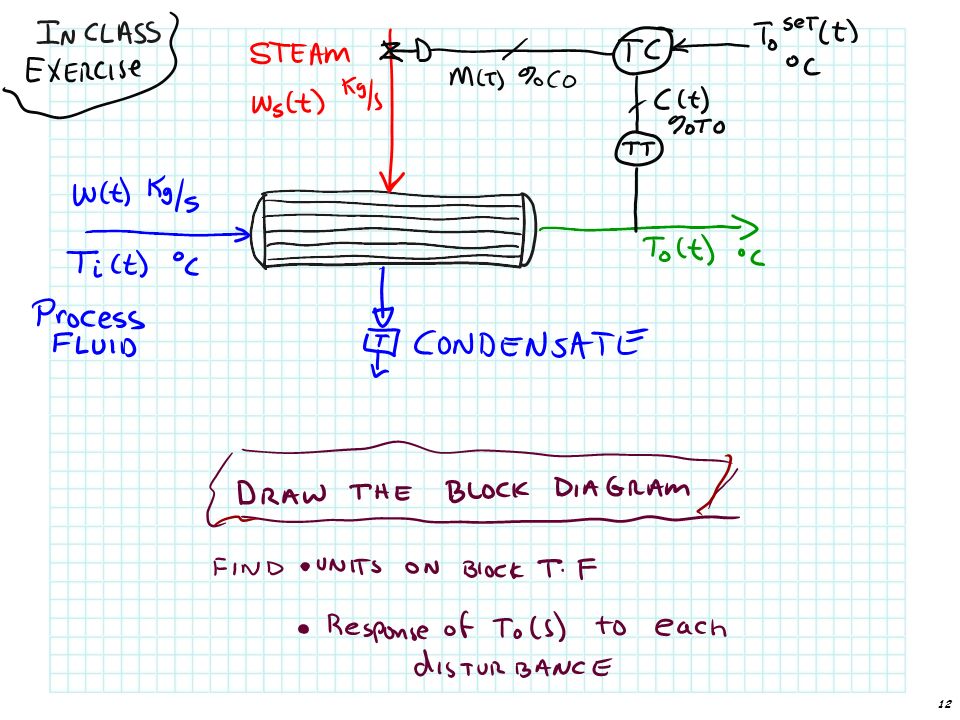 IN CLASS
EXERCISE
STEAM
Ws(t) Kg/s
M(T) %CO
TC
To set(t)
°C
C(t)
%TO
TT
W(t) Kg/s
Ti(t) °C
Process
FLUID
To(t) °C
T
CONDENSATE
DRAW THE BLOCK DIAGRAM
FIND • UNITS ON BLOCK T.F
• Response of To(s) to each
DISTURBANCE
12